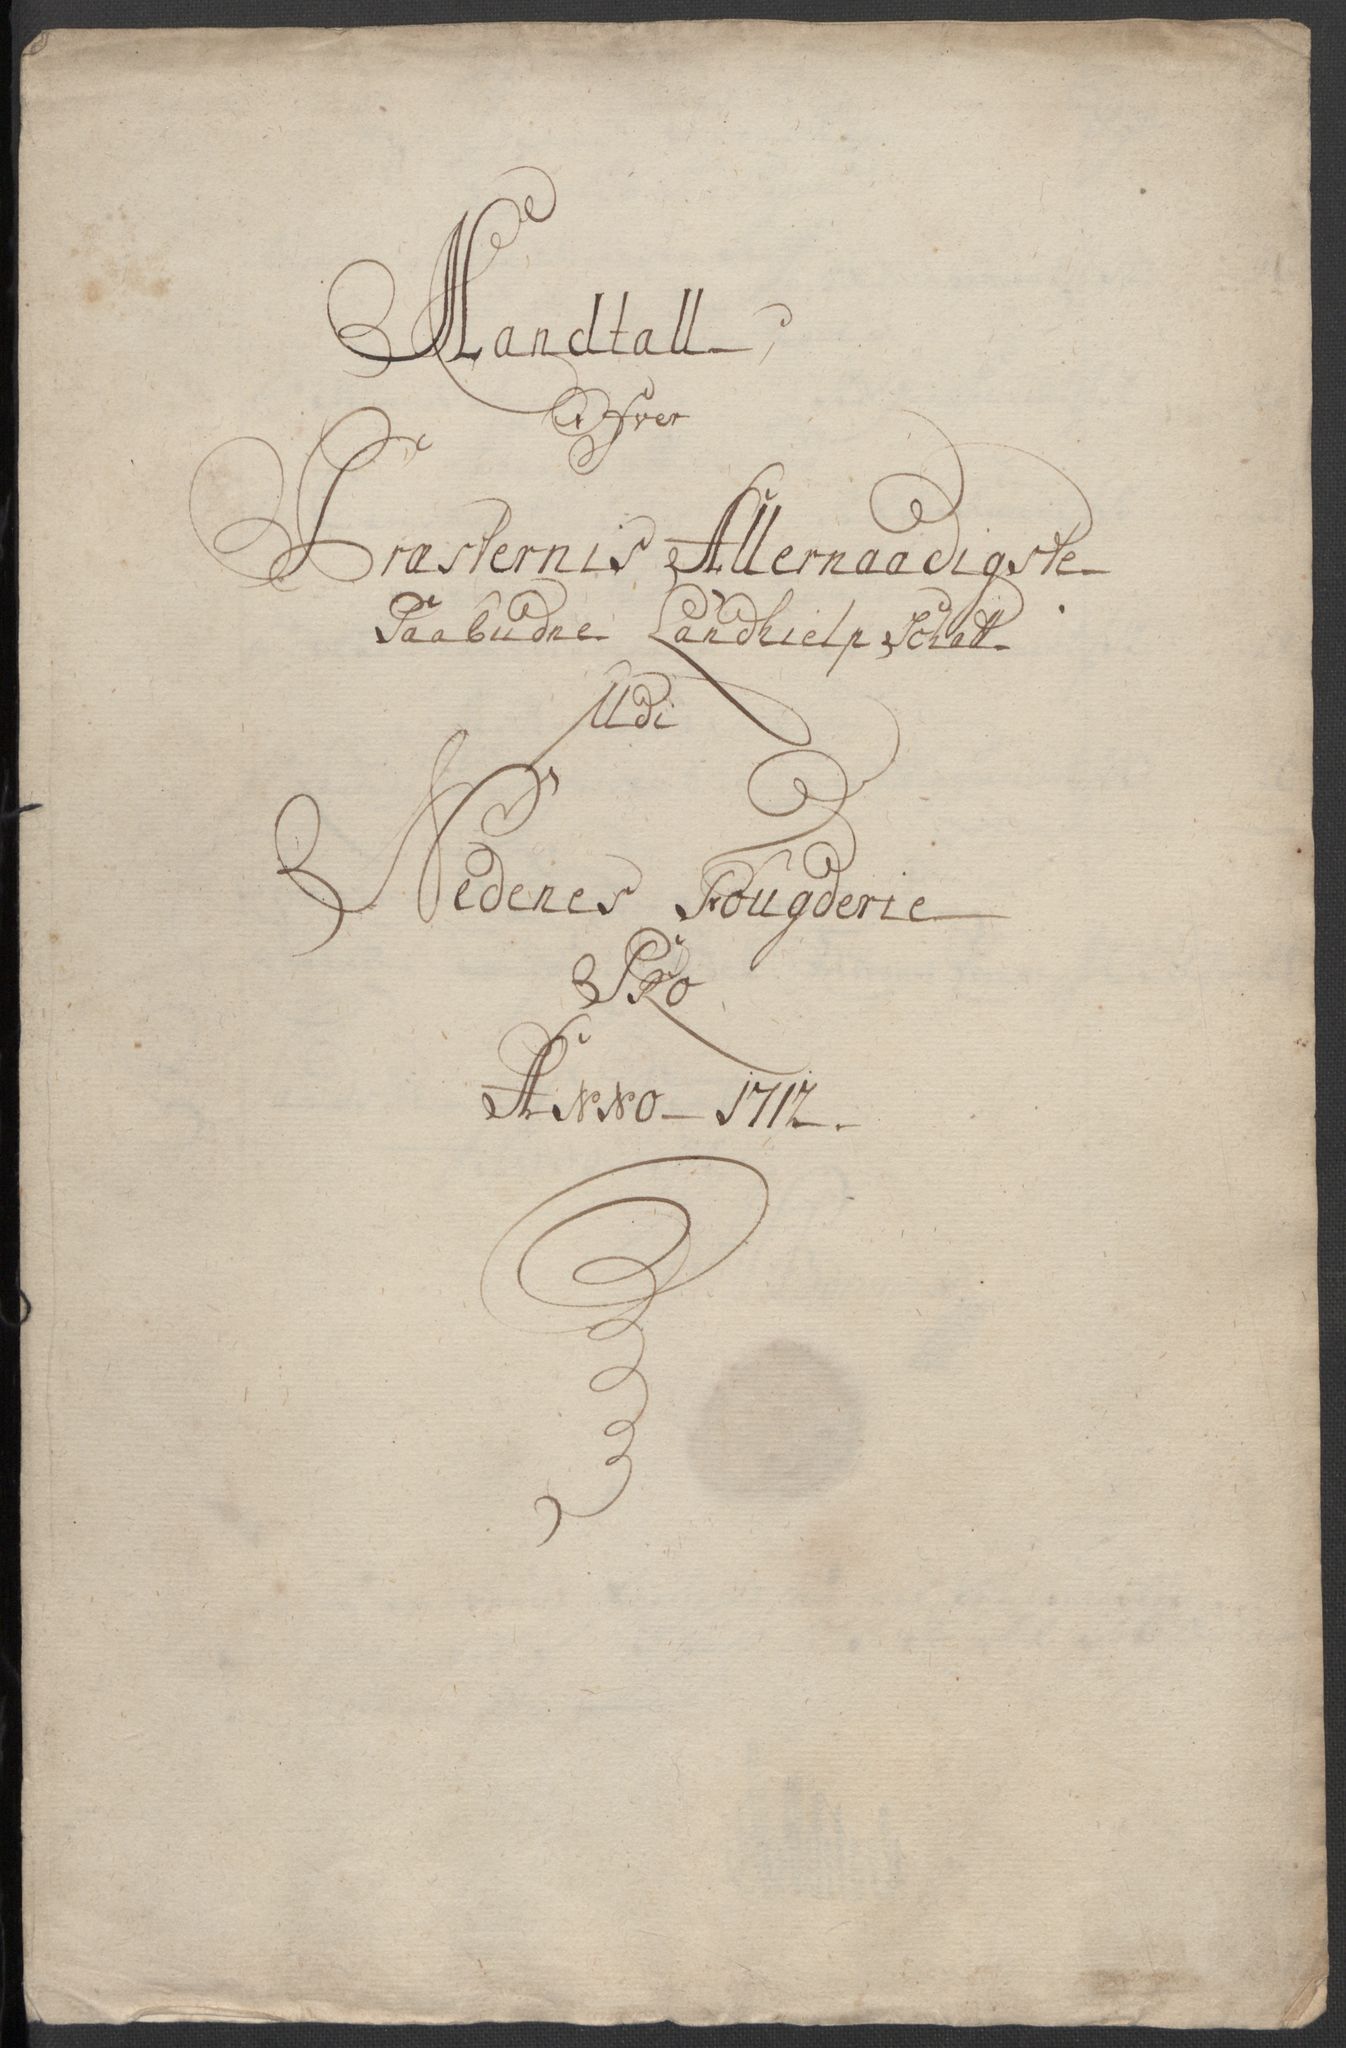 Mandtall
Ofver
Præsternis Allernaadigste
Paabudne Landhielp Schatt
Udi
Nedenes Fougderie
Pro
Anno 1712.